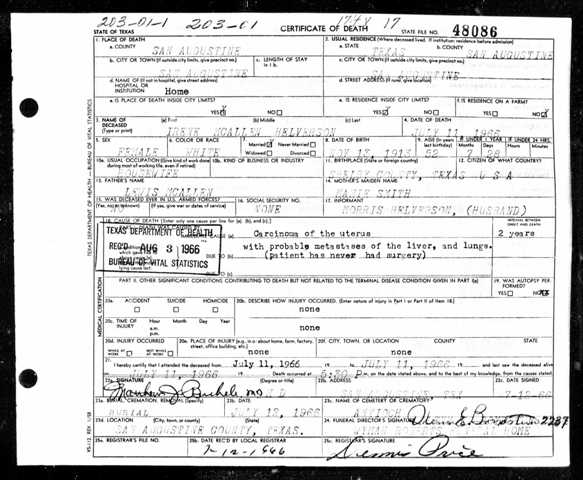 203-01-1 203-01 174X 17
STATE OF TEXAS CERTIFICATE OF DEATH STATE FILE NO. 48086
1. PLACE OF DEATH 2. USUAL RESIDENCE (Where deceased lived. If institution: residence before admission)
a. COUNTY SAN AUGUSTINE a. STATE TEXAS b. COUNTY SAN AUGUSTINE
b. CITY OR TOWN (If outside city limits, give precinct no.) c. LENGTH OF STAY in 1 b. c. CITY OR TOWN (If outside city limits, give precinct no.)
SAN AUGUSTINE SAN AUGUSTINE
d. NAME OF (If not in hospital, give street address) HOSPITAL OR INSTITUTION Home d. STREET ADDRESS (If rural, give location)
e. IS PLACE OF DEATH INSIDE CITY LIMITS? YES NO e. IS RESIDENCE INSIDE CITY LIMITS? YES NO f. IS RESIDENCE ON A FARM? YES NO
3. NAME OF DECEASED (Type or print) (a) First (b) Middle (c) Last 4. DATE OF DEATH
IRENE MCALLEN HELVERSON JULY 11, 1966
5. SEX 6. COLOR OR RACE 7. Married Never Married Widowed Divorced 8. DATE OF BIRTH 9. AGE IF UNDER 1 YEAR IF UNDER 24 HRS.
FEMALE WHITE NOV. 13, 1913 52 7 28
10a. USUAL OCCUPATION (Give kind of work done during most of working life, even if retired) 10b. KIND OF BUSINESS OR INDUSTRY 11. BIRTHPLACE (State or foreign country) 12. CITIZEN OF WHAT COUNTRY?
HOUSEWIFE SHELBY COUNTY, TEXAS U S A
13. FATHER'S NAME 14. MOTHER'S MAIDEN NAME
LEWIS MCALLEN MABLE SMITH
15. WAS DECEASED EVER IN U.S. ARMED FORCES? 16. SOCIAL SECURITY NO. 17. INFORMANT
(Yes, no, or unknown) (If yes, give war or dates of service)
NO NONE MORRIS HELVERSON, (HUSBAND)
18. CAUSE OF DEATH (Enter only one cause per line for (a), (b), and (c).) INTERVAL BETWEEN ONSET AND DEATH
TEXAS DEPARTMENT OF HEALTH
REC'D AUG 3 1966
BUREAU OF VITAL STATISTICS
Carcinoma of the uterus 2 years
with probable metastases of the liver, and lungs.
(patient has never had surgery)
PART II. OTHER SIGNIFICANT CONDITIONS CONTRIBUTING TO DEATH BUT NOT RELATED TO THE TERMINAL DISEASE CONDITION GIVEN IN PART I(a) 19. WAS AUTOPSY PERFORMED? YES NO
20a. ACCIDENT SUICIDE HOMICIDE 20b. DESCRIBE HOW INJURY OCCURRED. (Enter nature of injury in Part I or Part II of item 18.)
none
20c. TIME OF INJURY Hour Month Day Year a.m. p.m. none
20d. INJURY OCCURRED WHILE AT WORK NOT WHILE AT WORK 20e. PLACE OF INJURY (e.g., in or about home, farm, factory, street, office building, etc.) 20f. CITY, TOWN, OR LOCATION COUNTY STATE
none none
21. I hereby certify that I attended the deceased from July 11, 1966 to JULY 11, 1966 and last saw the deceased alive
on JULY 11, 1966 Death occurred at 5:30 P m. on the date stated above, and to the best of my knowledge, from the causes stated
22a. SIGNATURE (Degree or title) 22b. ADDRESS 22c. DATE SIGNED
MD 7-12-66
23a. BURIAL, CREMATION, REMOVAL (Specify) 23b. DATE 23c. NAME OF CEMETERY OR CREMATORY
BURIAL JULY 12, 1966 ANTIOCH
23d. LOCATION (City, town, or county) (State) 24. FUNERAL DIRECTOR'S SIGNATURE
SAN AUGUSTINE COUNTY, TEXAS. HOME 2237
25a. REGISTRAR'S FILE NO. 25b. DATE REC'D BY LOCAL REGISTRAR 25c. REGISTRAR'S SIGNATURE
7-12-1966 Dennis Price
TEXAS DEPARTMENT OF HEALTH — BUREAU OF VITAL STATISTICS
MEDICAL CERTIFICATION